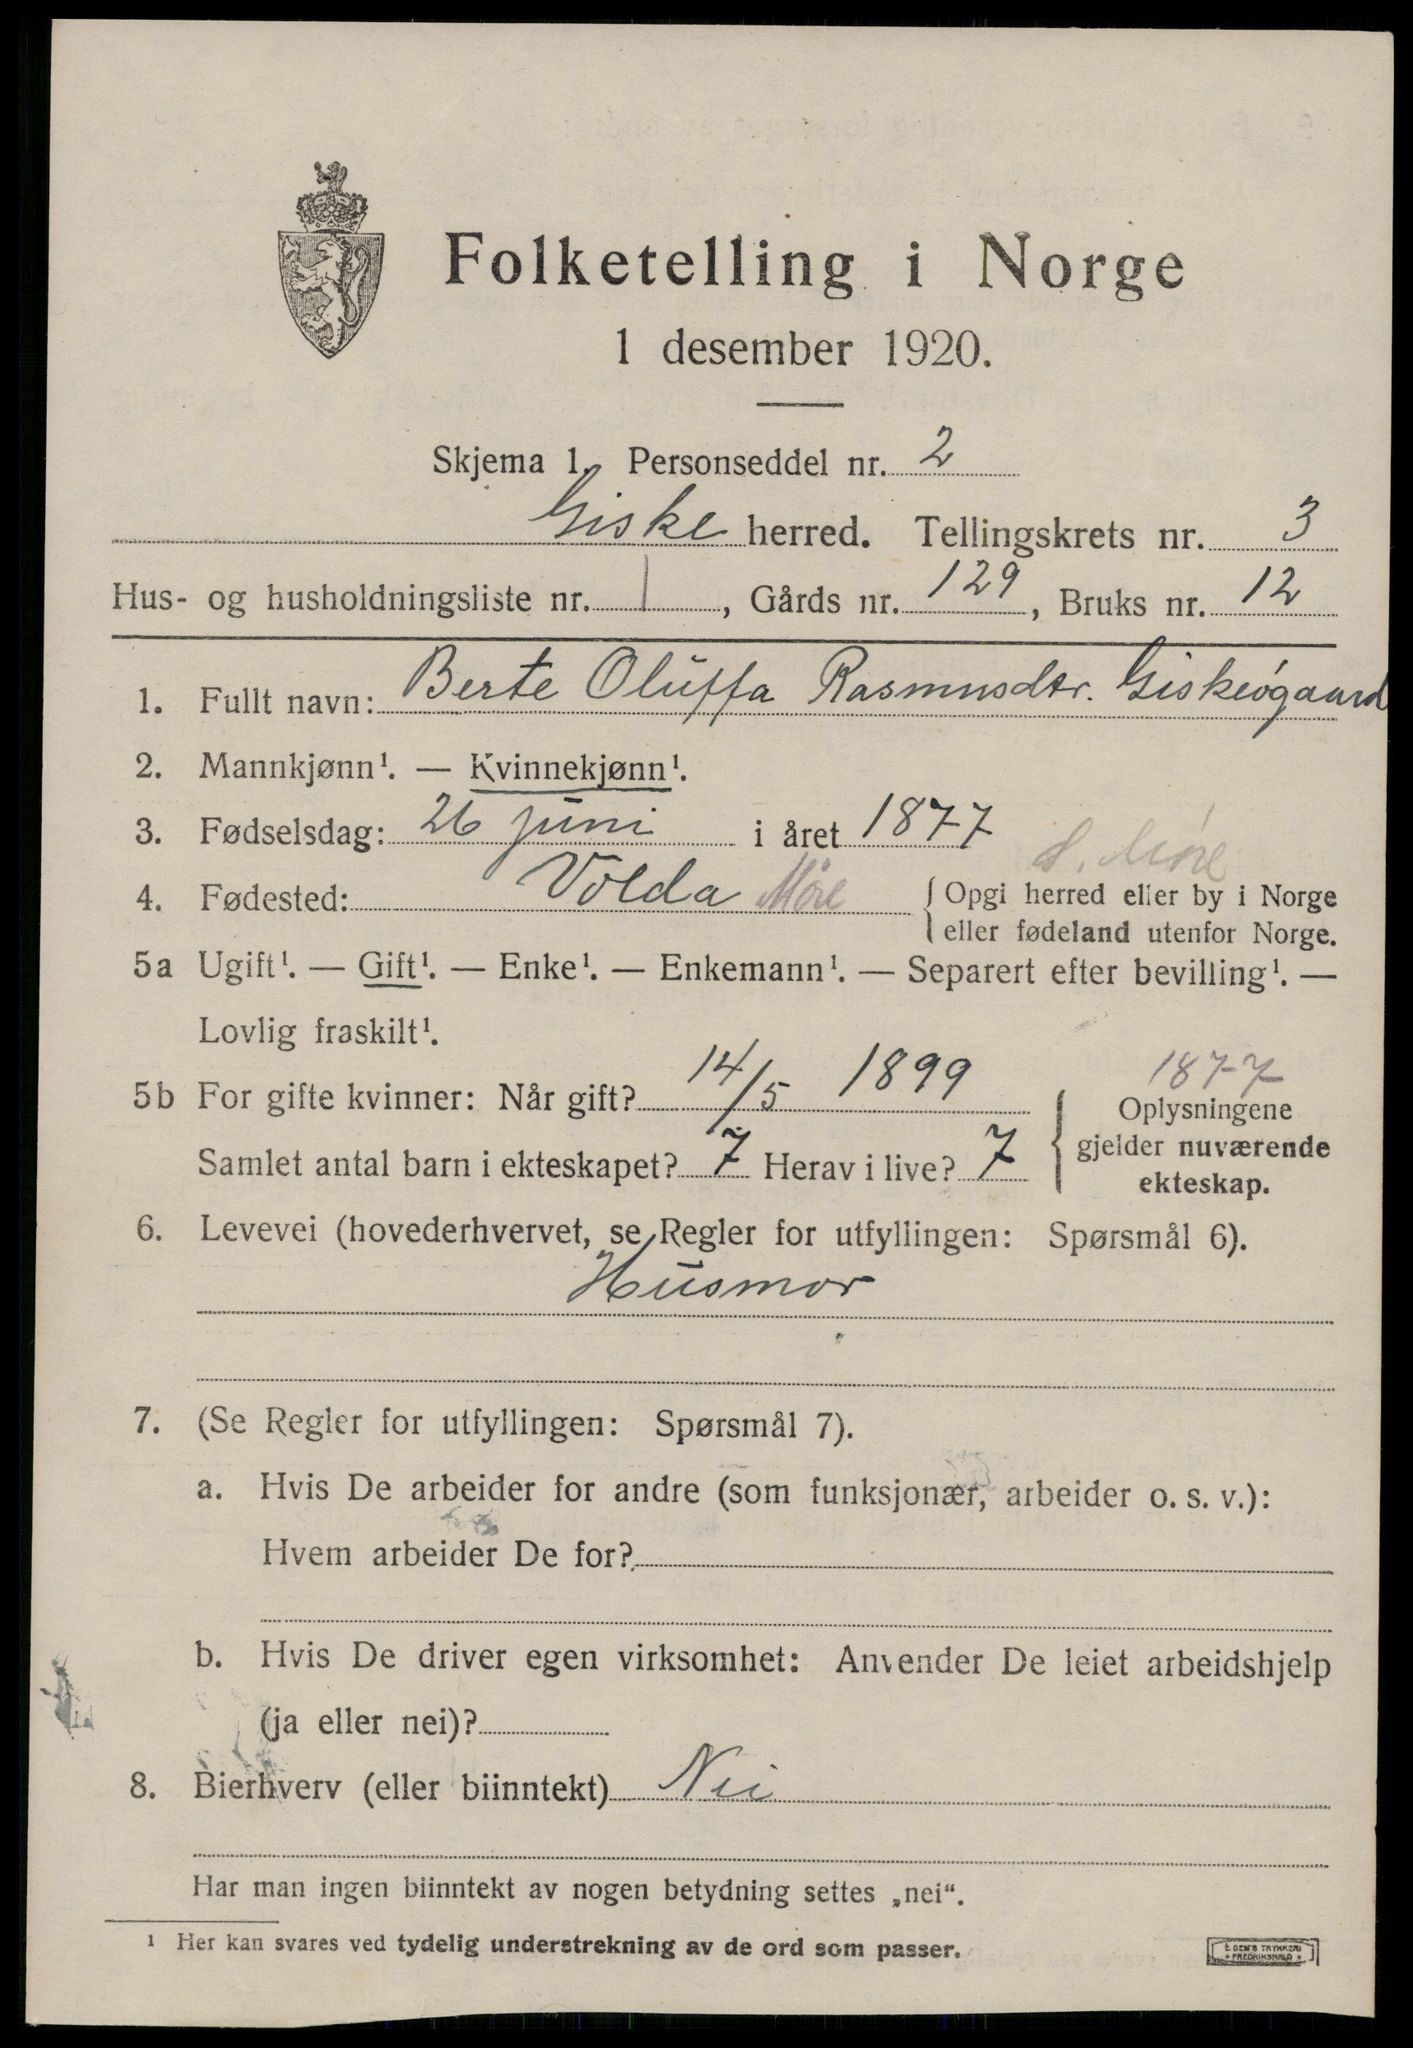 Folketelling i Norge
1 desember 1920.
Skjema 1. Personseddel nr. 2
Giske herred. Tellingskrets nr. 3
Hus- og husholdningsliste nr. 1, Gårds nr. 129, Bruks nr. 12
1. Fullt navn: Berte Oluffa Rasmusdtr. Giskeøgaard
2. Mannkjønn¹. — Kvinnekjønn¹.
3. Fødselsdag: 26 juni i året 1877
S. Møre
4. Fødested: Volda Møre { Opgi herred eller by i Norge
eller fødeland utenfor Norge.
5a Ugift¹. — Gift¹. — Enke¹. — Enkemann¹. — Separert efter bevilling¹. —
Lovlig fraskilt¹.
5b For gifte kvinner: Når gift? 14/5 1899
1877
Samlet antal barn i ekteskapet? 7 Herav i live? 7
Oplysningene
gjelder nuværende
ekteskap.
6. Levevei (hovederhvervet, se Regler for utfyllingen: Spørsmål 6).
Husmor
7. (Se Regler for utfyllingen: Spørsmål 7).
a. Hvis De arbeider for andre (som funksjonær, arbeider o. s. v.):
Hvem arbeider De for?
b. Hvis De driver egen virksomhet: Anvender De leiet arbeidshjelp
(ja eller nei)?
8. Bierhverv (eller biinntekt) Nei
Har man ingen biinntekt av nogen betydning settes „nei“.
¹ Her kan svares ved tydelig understrekning av de ord som passer.
E. SEM'S TRYKKERI
FREDRIKSHALD